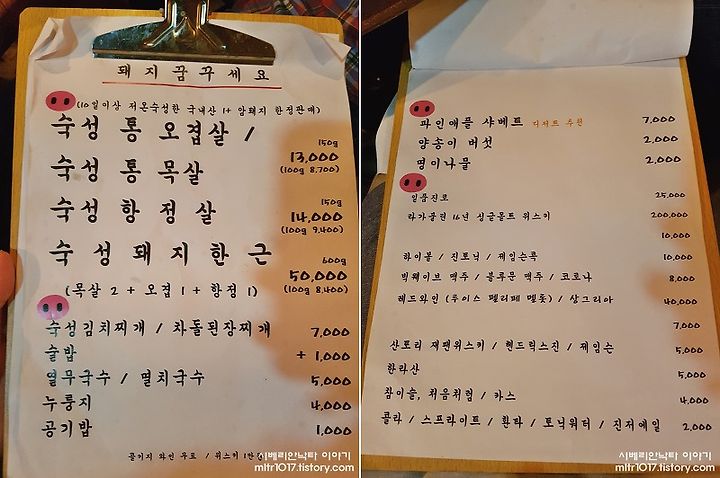 돼지꿈꾸세요
(10일이상 저온숙성한 국내산 1+ 암퇘지 한정판매)
숙성 통 오겹살 /
숙성 통 목살
150g
13,000
(100g 8,700)
숙성 항 정 살
150g
14,000
(100g 9,400)
숙 성 돼 지 한 근
600g
50,000
(목살 2 + 오겹 1 + 항정 1)
(100g 8,400)
숙성김치찌개 / 차돌된장찌개 7,000
술밥 + 1,000
열무국수 / 멸치국수 5,000
누룽지 4,000
공기밥 1,000
콜키지 와인 무료 / 위스키 1만원
시베리안낙타 이야기
mltr1017.tistory.com
파인애플 샤베트 디저트 추천 7,000
양송이 버섯 2,000
명이나물 2,000
일품진로 25,000
라가불린 16년 싱글몰트 위스키 200,000
10,000
하이볼 / 진토닉 / 제임슨콕 10,000
빅웨이브 맥주 / 블루문 맥주 / 코로나 8,000
레드와인 (루이스 펠리페 멜롯) / 상그리아 40,000
7,000
산토리 재팬위스키 / 헨드릭스진 / 제임슨 5,000
한라산 5,000
참이슬, 처음처럼 / 카스 4,000
콜라 / 스프라이트 / 환타 / 토닉워터 / 진저에일 2,000
시베리안낙타 이야기
mltr1017.tistory.com